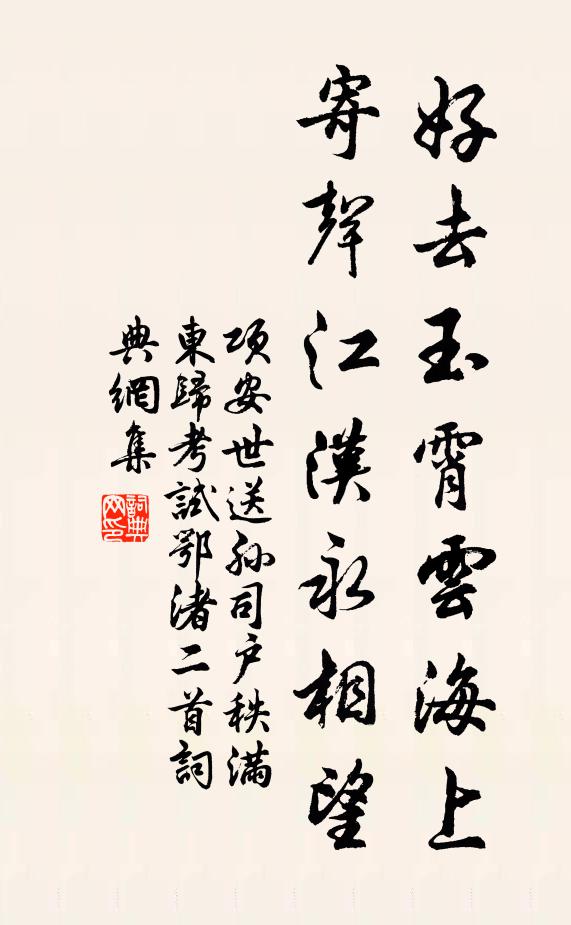 好去玉霄雲海上
寄聲江漢永相望
項安世送孫司户秩滿
東歸考試鄂渚二首詞
典網集
詞典網印